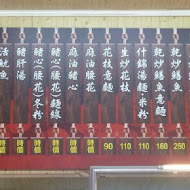 乾炒鱔魚 250
乾炒鱔魚意麵 160
什錦湯麵·米粉 110
生炒花枝 110
花枝意麵 90
麻油腰花 時價
麻油豬心 時價
豬心(腰花)麵線 時價
豬心(腰花)冬粉 時價
豬肝湯 時價
活魷魚 時價